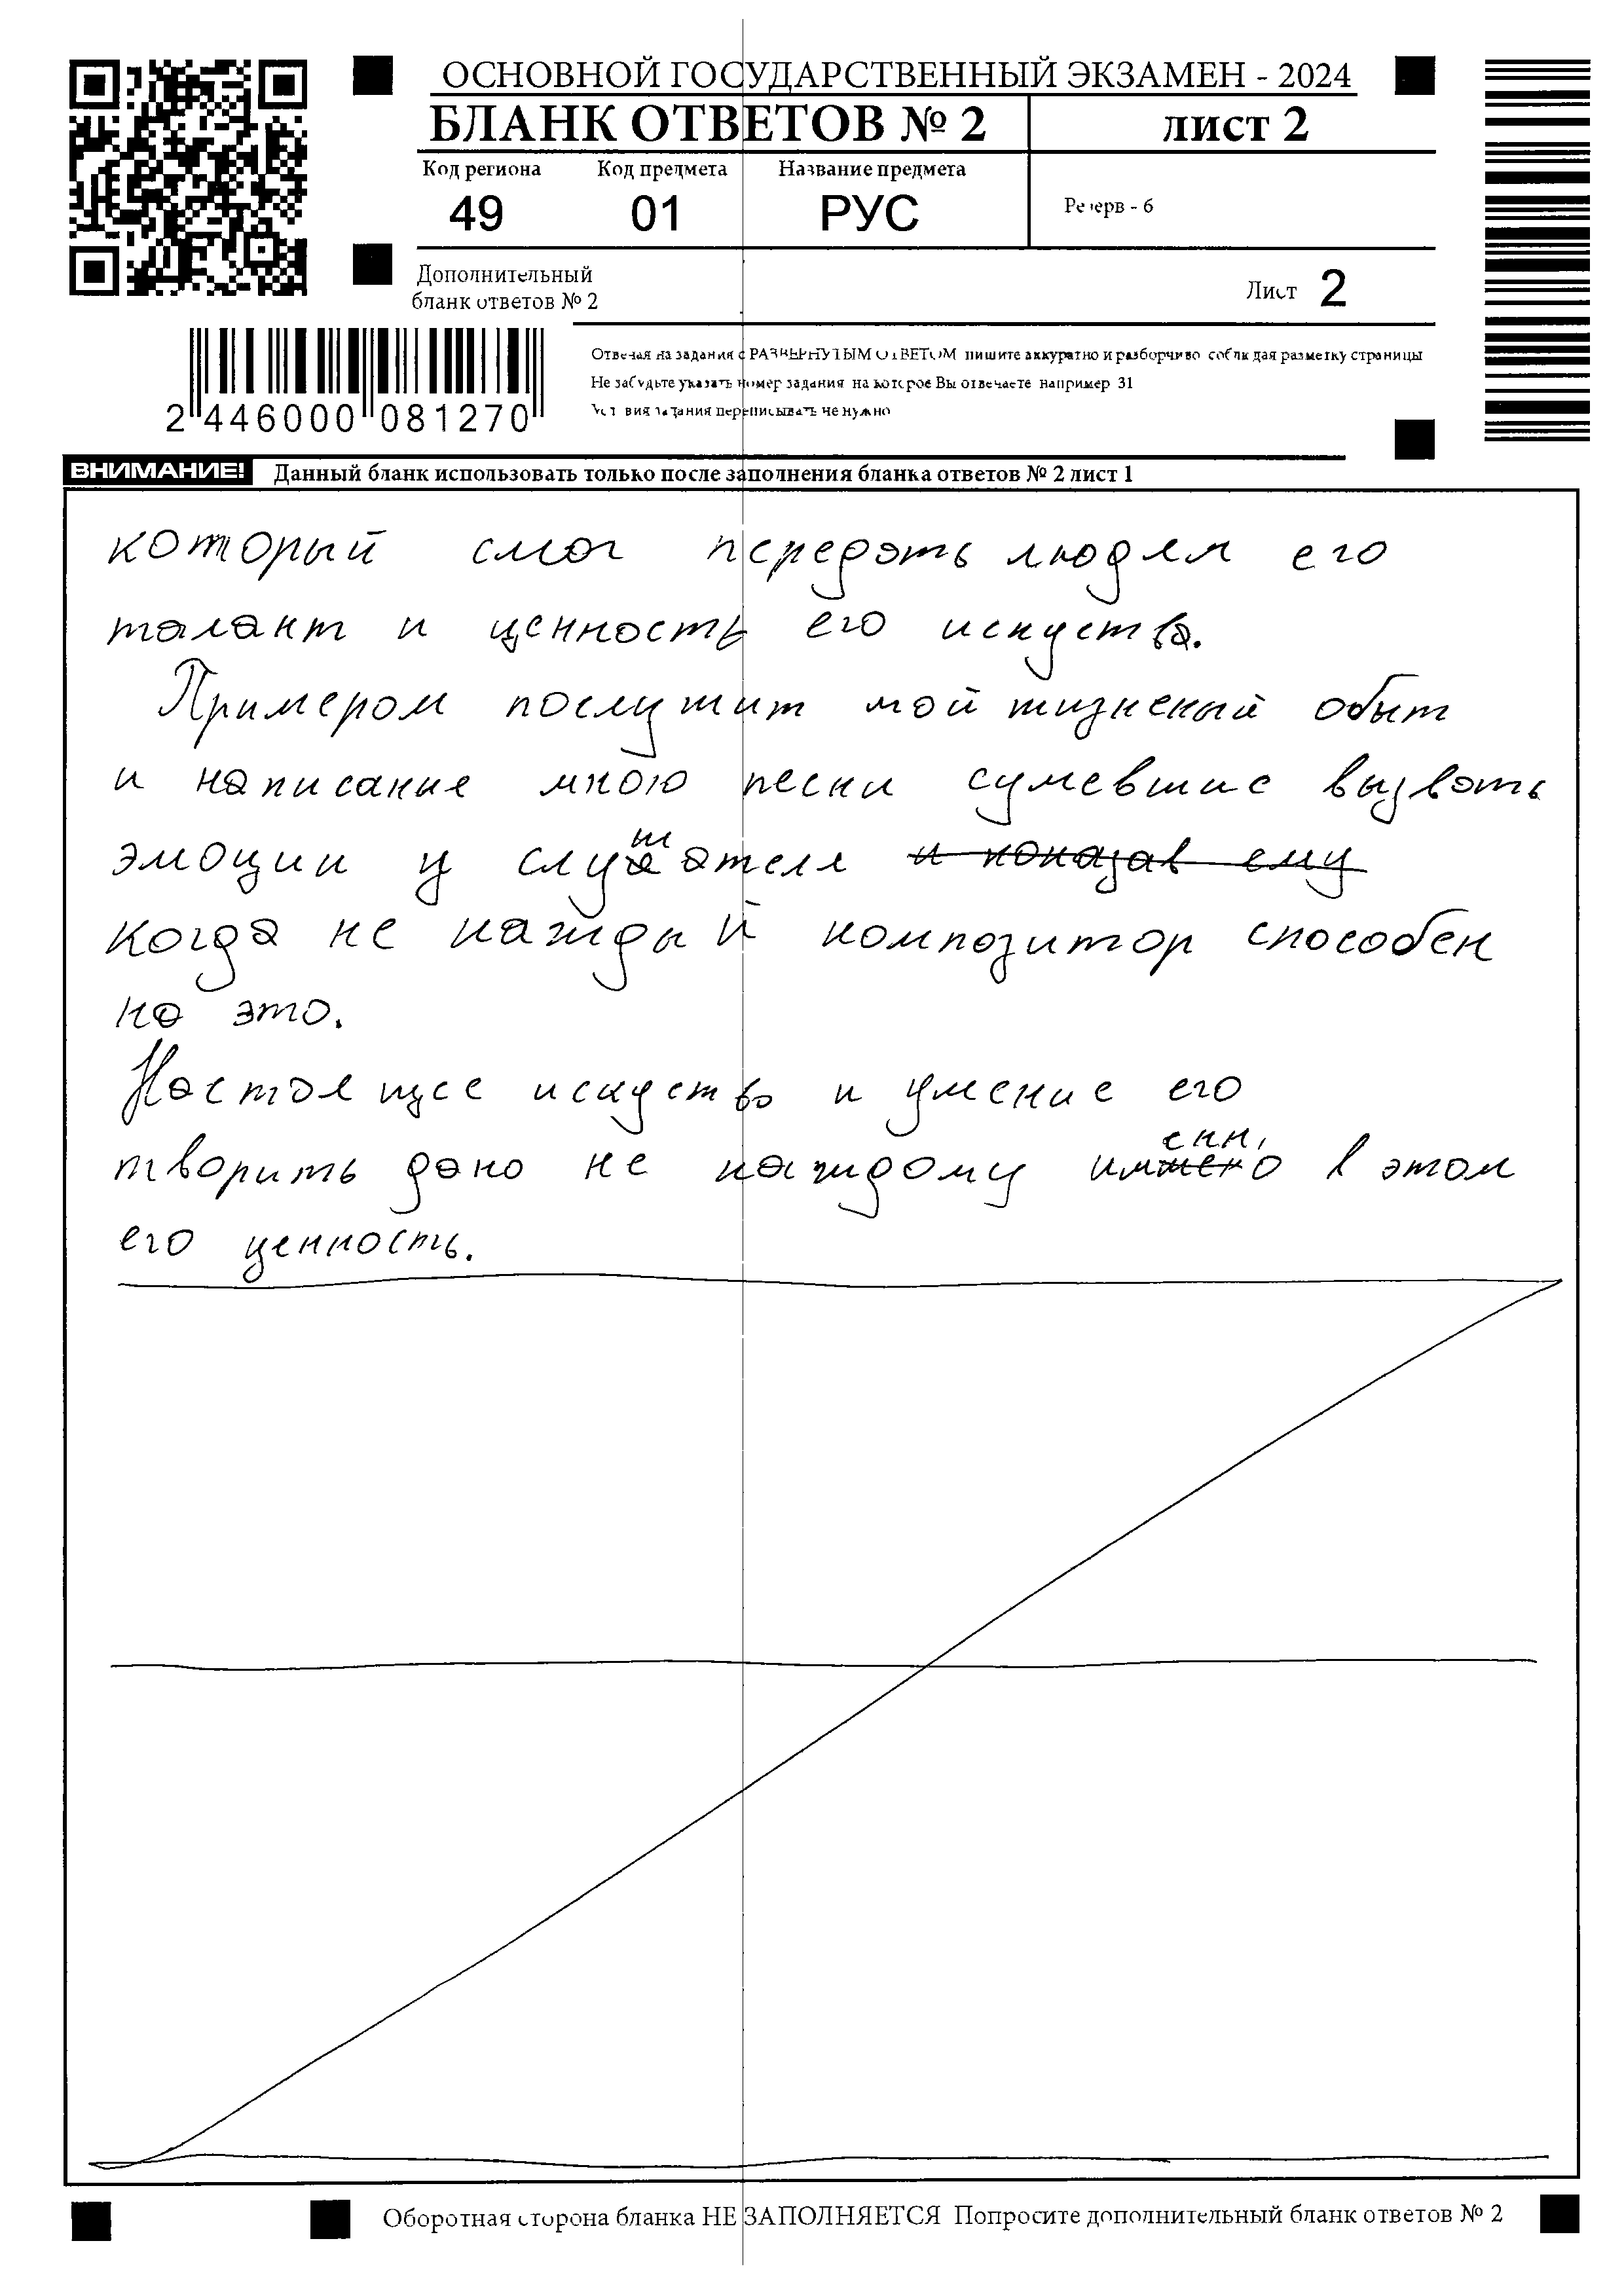 ОСНОВНОЙ ГОСУДАРСТВЕННЫЙ ЭКЗАМЕН - 2024
БЛАНК ОТВЕТОВ № 2
лист 2
Код региона
Код предмета
Название предмета
49
01
РУС
Резерв - 6
Дополнительный
бланк ответов № 2
Лист 2
2 446000 081270
Отвечая на задания с РАЗВЕРНУТЫМ ОТВЕТОМ пишите аккуратно и разборчиво соблюдая разметку страницы
Не забудьте указать номер задания на которое Вы отвечаете например 31
Условия задания переписывать не нужно
ВНИМАНИЕ!
Данный бланк использовать только после заполнения бланка ответов № 2 лист 1
который смог передать людям его
талант и ценность его искуства.
Примером послужит мой жизненый обыт
и написание мною песни сумевшие вызвать
эмоции у слушателя и показав ему
когда не каждый композитор способен
на это.
Настоящее искуство и умение его
творить дано не каждому именно в этом
его ценность.
Оборотная сторона бланка НЕ ЗАПОЛНЯЕТСЯ Попросите дополнительный бланк ответов № 2